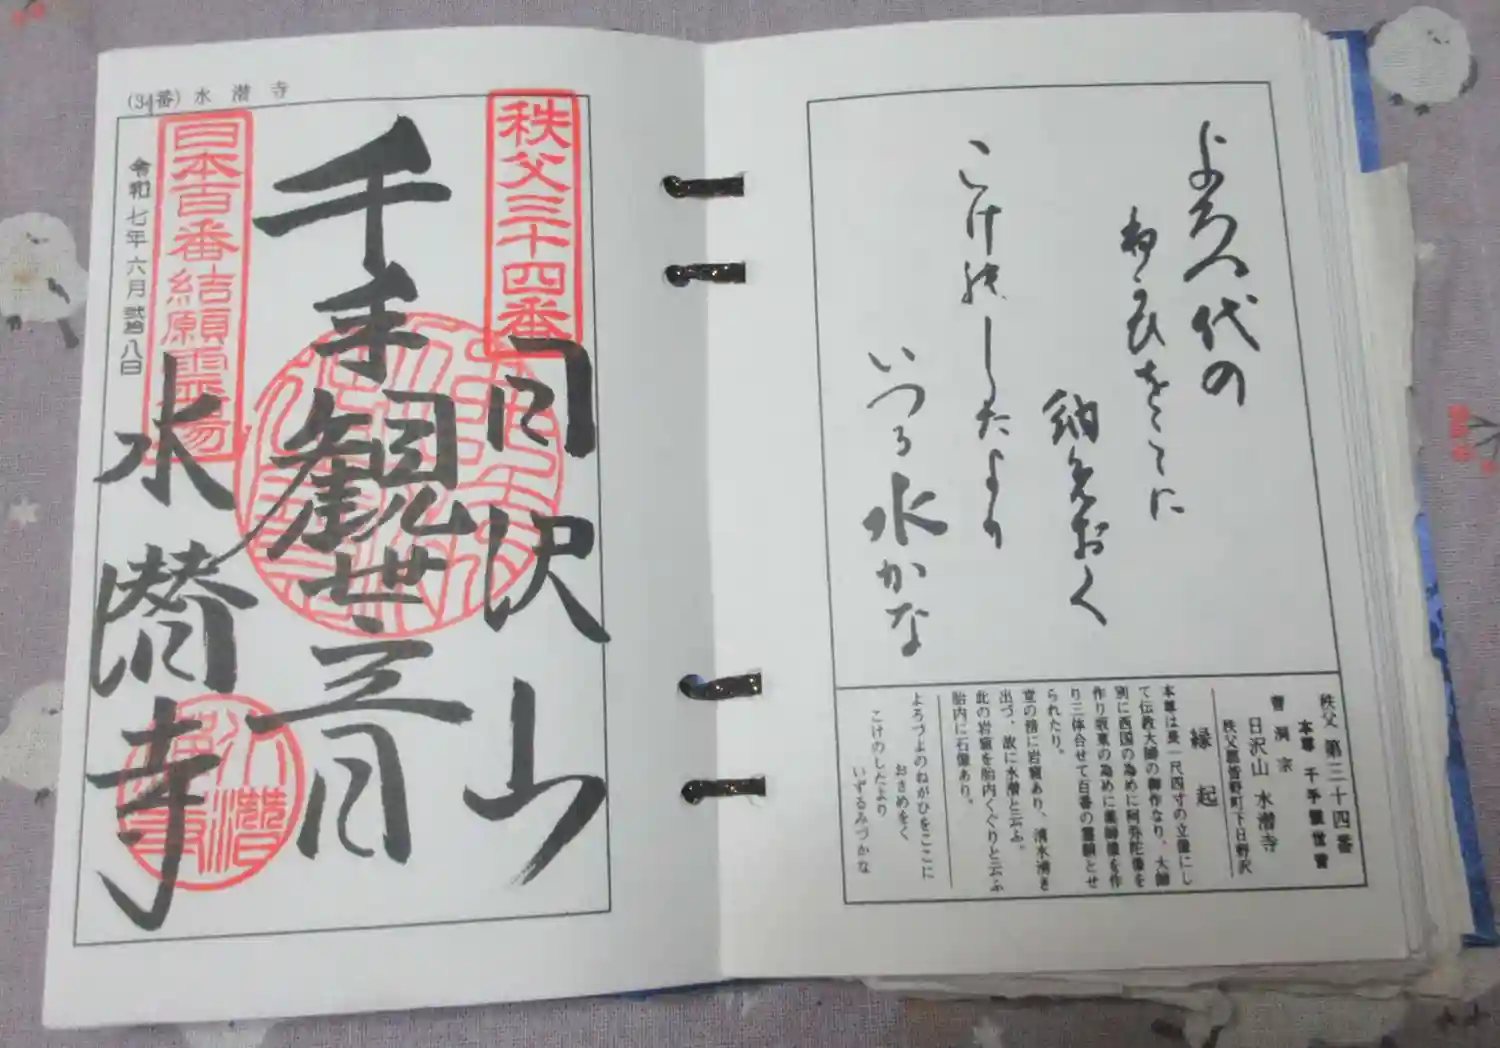 よろつ代の
ねかひをここに
納めおく
こけ
したより
いつる水かな
秩父 第三十四番
本尊 千手観世音
曹洞宗
日沢山 水潜寺
秩父郡皆野町下日野沢
縁起
本尊は長一尺四寸の立像にし
て伝教大師の御作なり、大師
別に西国の為めに阿弥陀像を
作り坂東の為めに薬師像を作
り三体合せて百番の霊願とせ
られたり。
堂の傍に岩窟あり、清水湧き
出づ、故に水潜と云ふ。
此の岩窟を胎内くぐりと云ふ
胎内に石像あり。
よろづよのねがひをここに
おさめをく
こけのしたより
いずるみづかな
(34番) 水潜寺
秩父三十四番
日沢山
千手観世音
日本百番結願霊場
水潜寺
令和七年六月弐拾八日